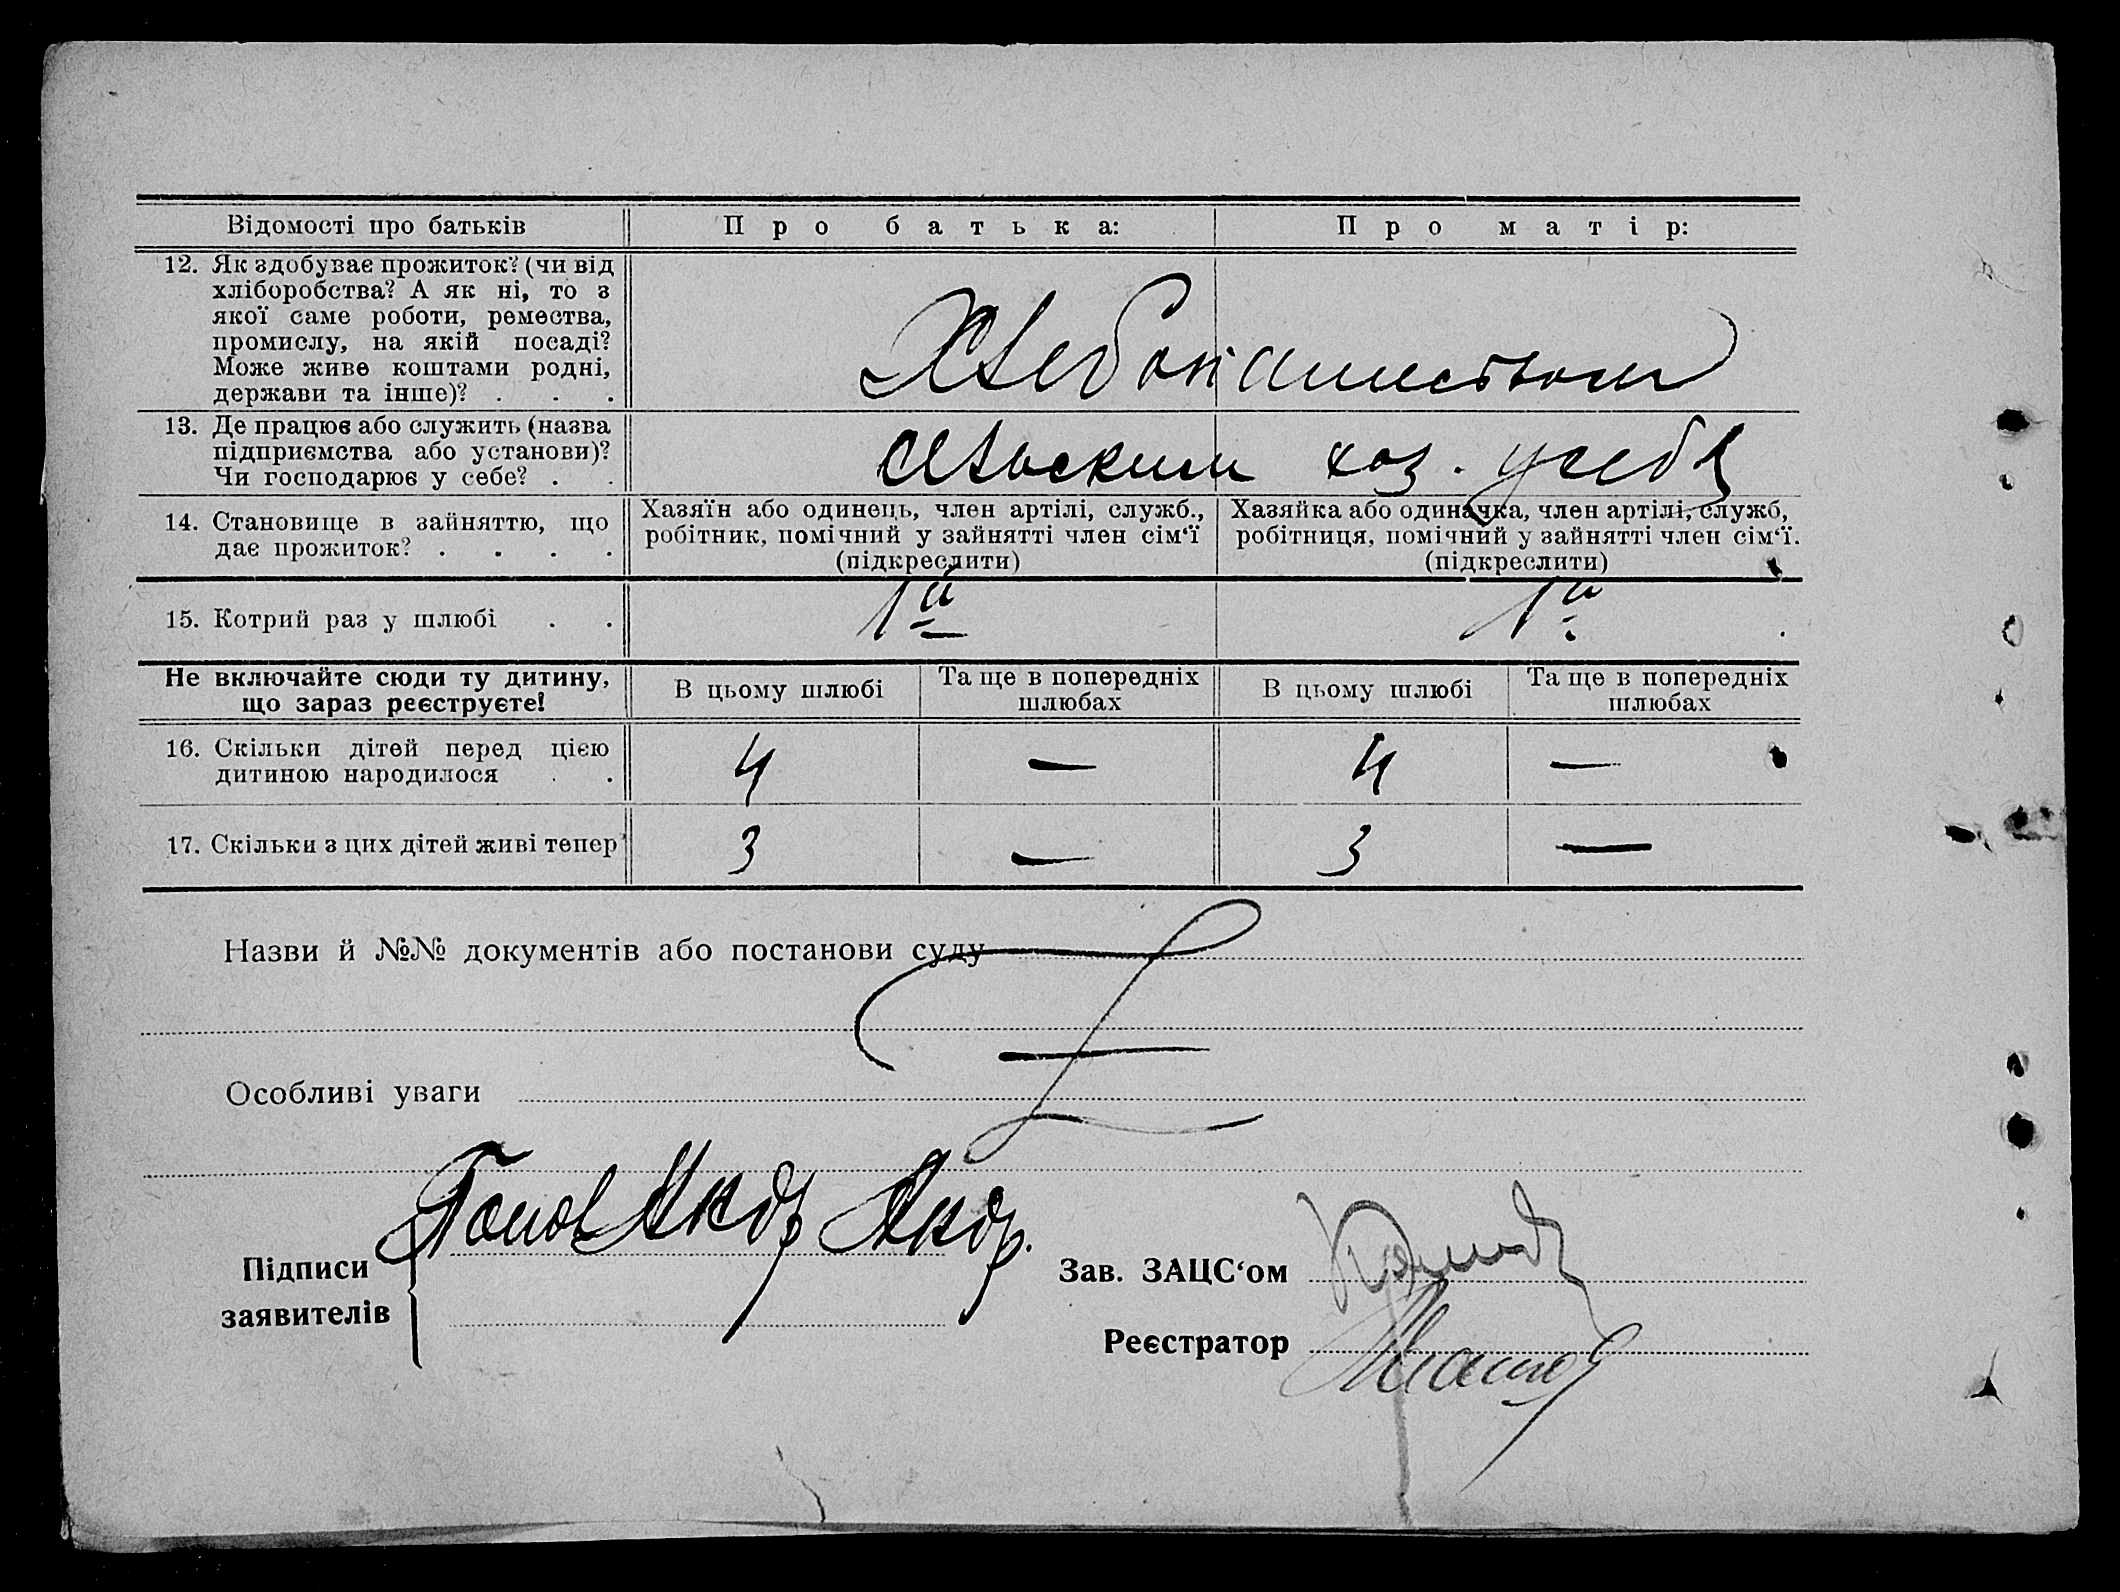 Відомості про батьків Про батька: Про матір:
12. Як здобуває прожиток? (чи від
хліборобства? А як ні, то з
якої саме роботи, ремества,
промислу, на якій посаді?
Може живе коштами родні,
держави та інше)? . . .
Хлебопашеством
13. Де працює або служить (назва
підприємства або установи)?
Чи господарює у себе? . .
сельским хоз. у себя
14. Становище в зайняттю, що
дає прожиток? . . . .
Хазяїн або одинець, член артілі, служб.,
робітник, помічний у зайнятті член сім‘ї
(підкреслити)
Хазяйка або одиначка, член артілі, служб,
робітниця, помічний у зайнятті член сім‘ї.
(підкреслити)
15. Котрий раз у шлюбі . . 1й 1й
Не включайте сюди ту дитину,
що зараз реєструєте!
В цьому шлюбі
Та ще в попередніх
шлюбах
В цьому шлюбі
Та ще в попередніх
шлюбах
16. Скільки дітей перед цією
дитиною народилося . .
4 — 4 —
17. Скільки з цих дітей живі тепер 3 — 3 —
Назви й №№ документів або постанови суду
Особливі уваги
Попов Андр Андр.
Підписи
заявителів
Зав. ЗАЦС‘ом
Реєстратор